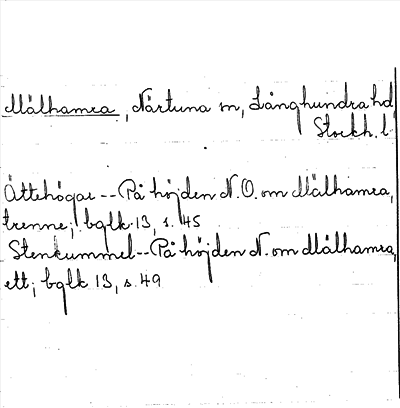 Målhamra, Närtuna sn, Långhundra hd
Stockh. l
Ättehögar -- På höjden N.O. om Målhamra,
trenne; bqlk 13, s. 45
Stenkummel -- På höjden N. om Målhamra,
ett; bqlk 13, s. 49